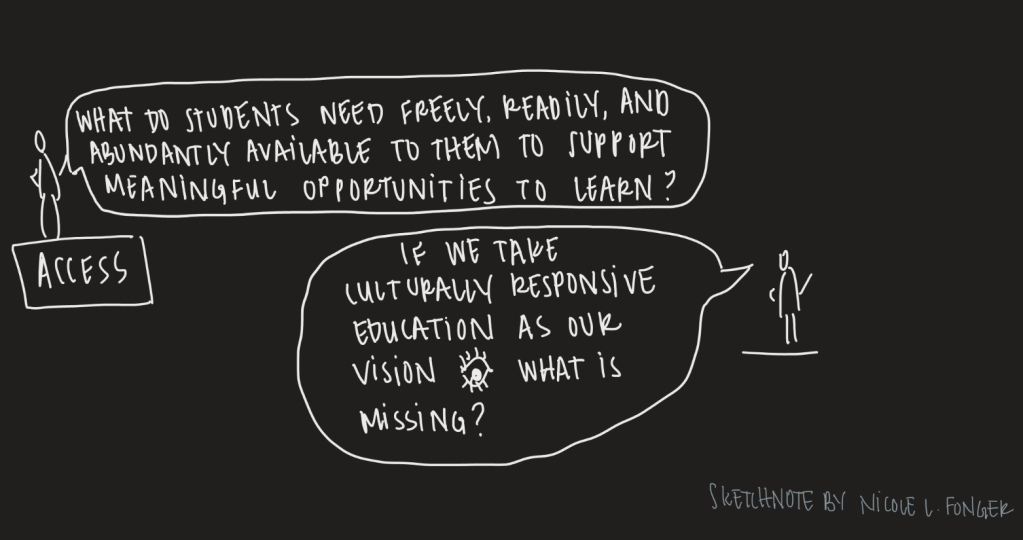 WHAT DO STUDENTS NEED FREELY, READILY, AND
ABUNDANTLY AVAILABLE TO THEM TO SUPPORT
MEANINGFUL OPPORTUNITIES TO LEARN?
ACCESS
IF WE TAKE
CULTURALLY RESPONSIVE
EDUCATION AS OUR
VISION WHAT IS
MISSING?
SKETCHNOTE BY NICOLE L. FONGER